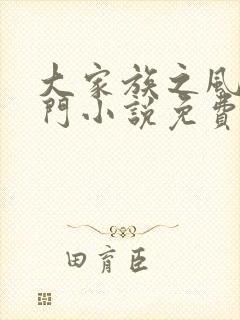 大家族之风
门小說免費
田育臣